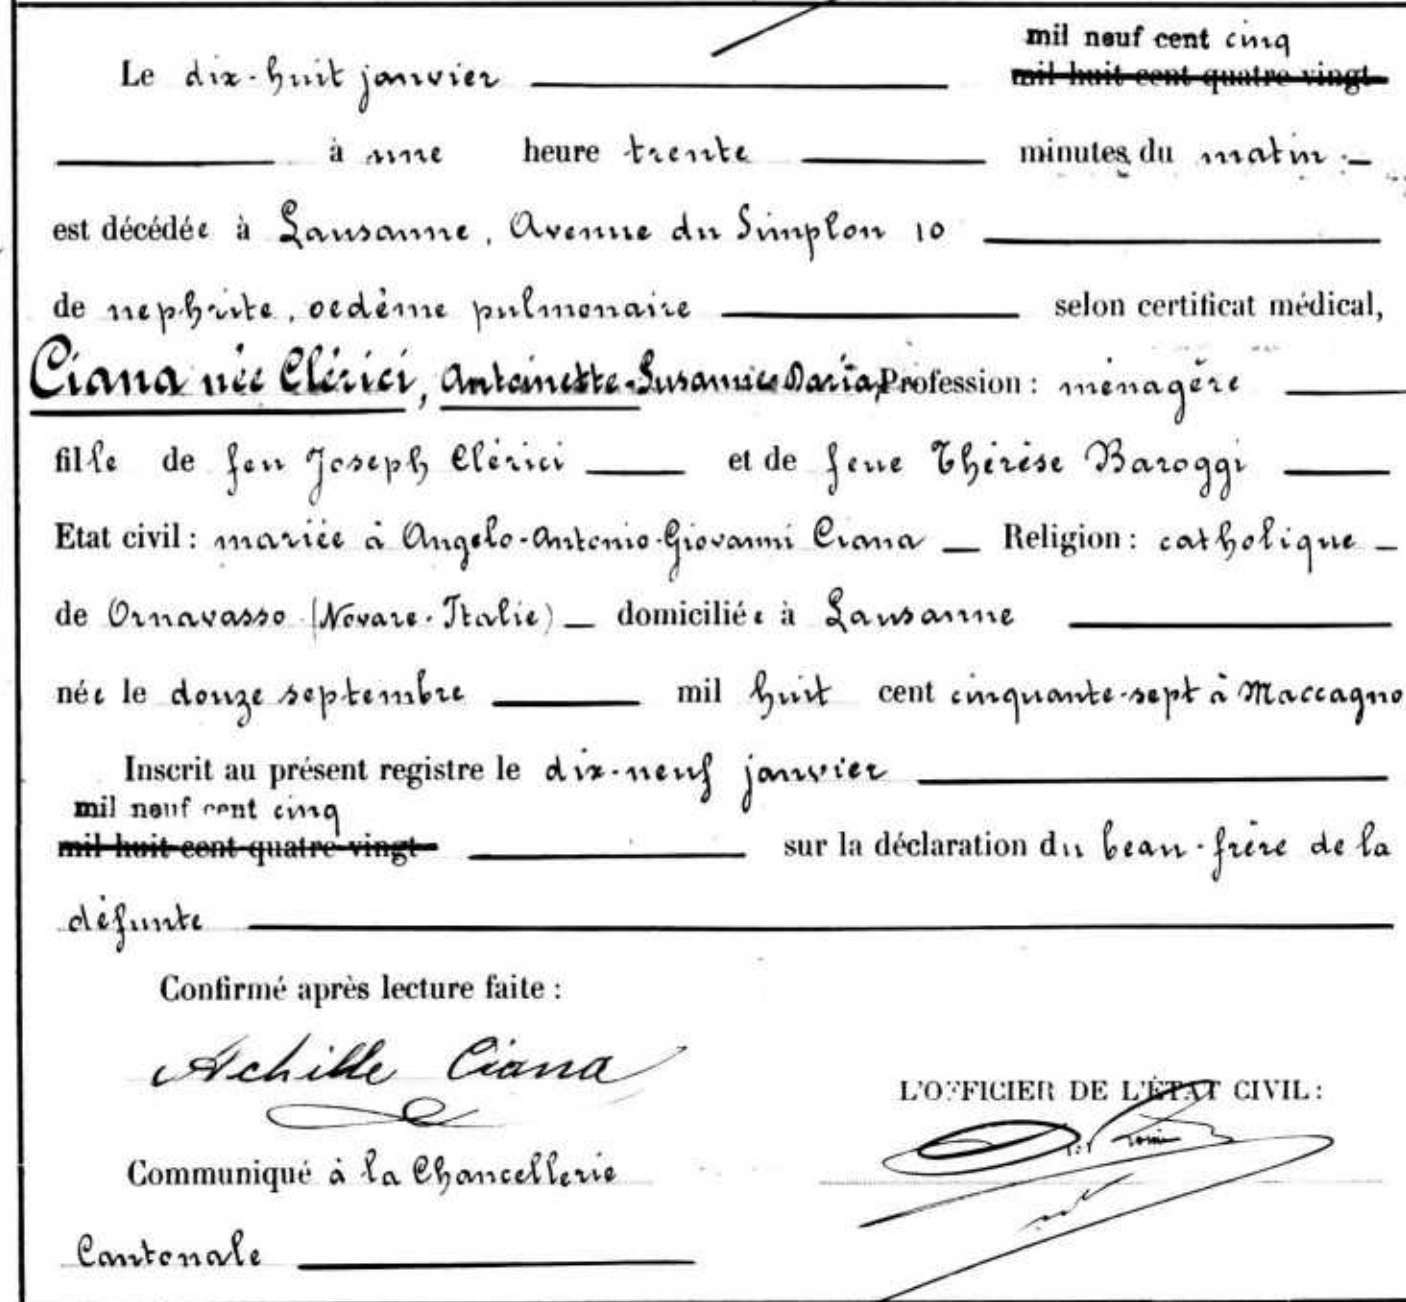 mil neuf cent cinq
Le dix-huit janvier mil huit cent quatre vingt
à une heure trente minutes du matin :
est décédée à Lausanne, Avenue du Simplon 10
de nephrite, oedème pulmonaire selon certificat médical,
Ciana née Clérici, Antoinette-Susanne Daria, Profession : ménagère
fille de feu Joseph Clérici et de feue Thérèse Baroggi
Etat civil : mariée à Angelo-Antonio-Giovanni Ciana Religion : catholique
de Ornavasso (Novare-Italie) domiciliée à Lausanne
née le douze septembre mil huit cent cinquante-sept à Maccagno
Inscrit au présent registre le dix-neuf janvier
mil neuf cent cinq
mil huit cent quatre vingt sur la déclaration du beau-frère de la
défunte
Confirmé après lecture faite :
Achille Ciana
L'OFFICIER DE L'ÉTAT CIVIL :
Communiqué à la Chancellerie
Cantonale